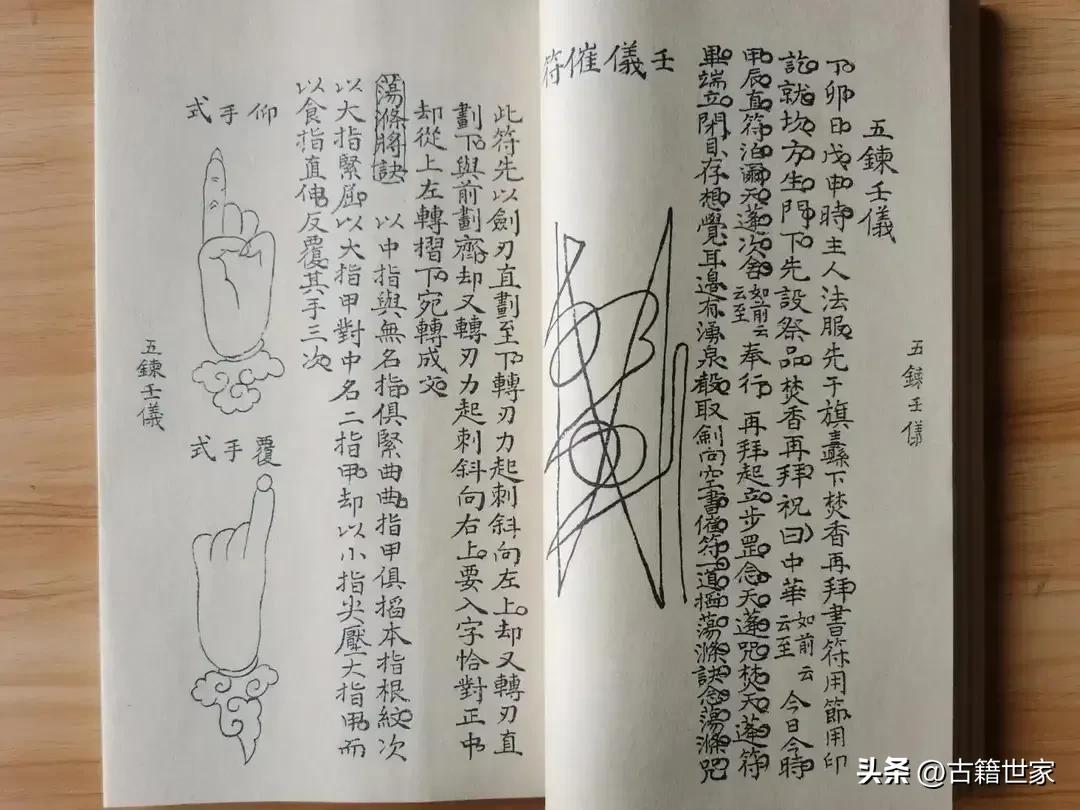 五鍊壬儀
丁卯日戊申時主人法服先于旗纛下焚香再拜書符用篩用印
訖就坎方生門下先設祭品焚香再拜祝曰中華如前云云至今日今時
甲辰直符泊灟天蓬次舍如前云云至奉行再拜起立步罡念天蓬咒焚天蓬符
畢端立閉目存想覺耳邊有湧泉聲取劍向空書催符一道掐蕩滌訣念蕩滌咒
壬儀催符
五鍊壬儀
此符先以劍刃直劃至下轉刃力起刺斜向左上却又轉刃直
劃下與前劃齊却又轉刃力起刺斜向右上要入字恰對正中
却從上左轉摺下宛轉成文
蕩滌將訣 以中指與無名指俱緊曲曲指甲俱搯本指根紋次
以大指緊屈以大指甲對中名二指甲却以小指尖壓大指甲而
以食指直伸反覆其手三次
仰手式
覆手式
五鍊壬儀
头条 @古籍世家